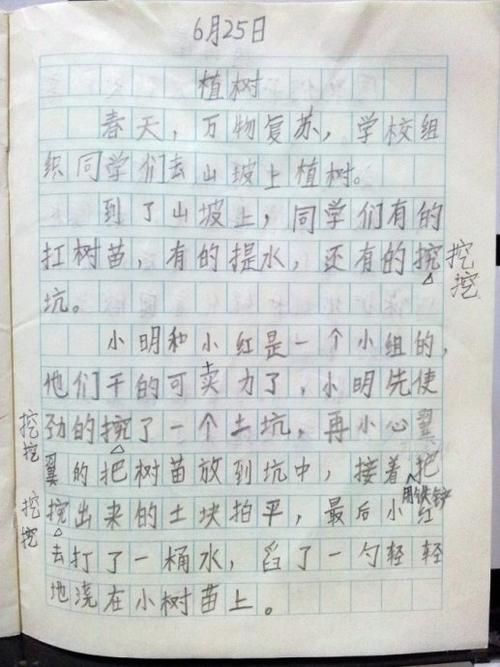 6月25日
植树
春天，万物复苏，学校组
织同学们去山坡上植树。
到了山坡上，同学们有的
扛树苗，有的提水，还有的挖 挖
坑。 挖
小明和小红是一个小组的，
他们干的可卖力了，小明先使
挖 劲的挖了一个土坑，再小心翼
挖 翼的把树苗放到坑中，接着把
用铁锹
挖 挖出来的土块拍平，最后小红
挖 去打了一桶水，舀了一勺轻轻
地浇在小树苗上。